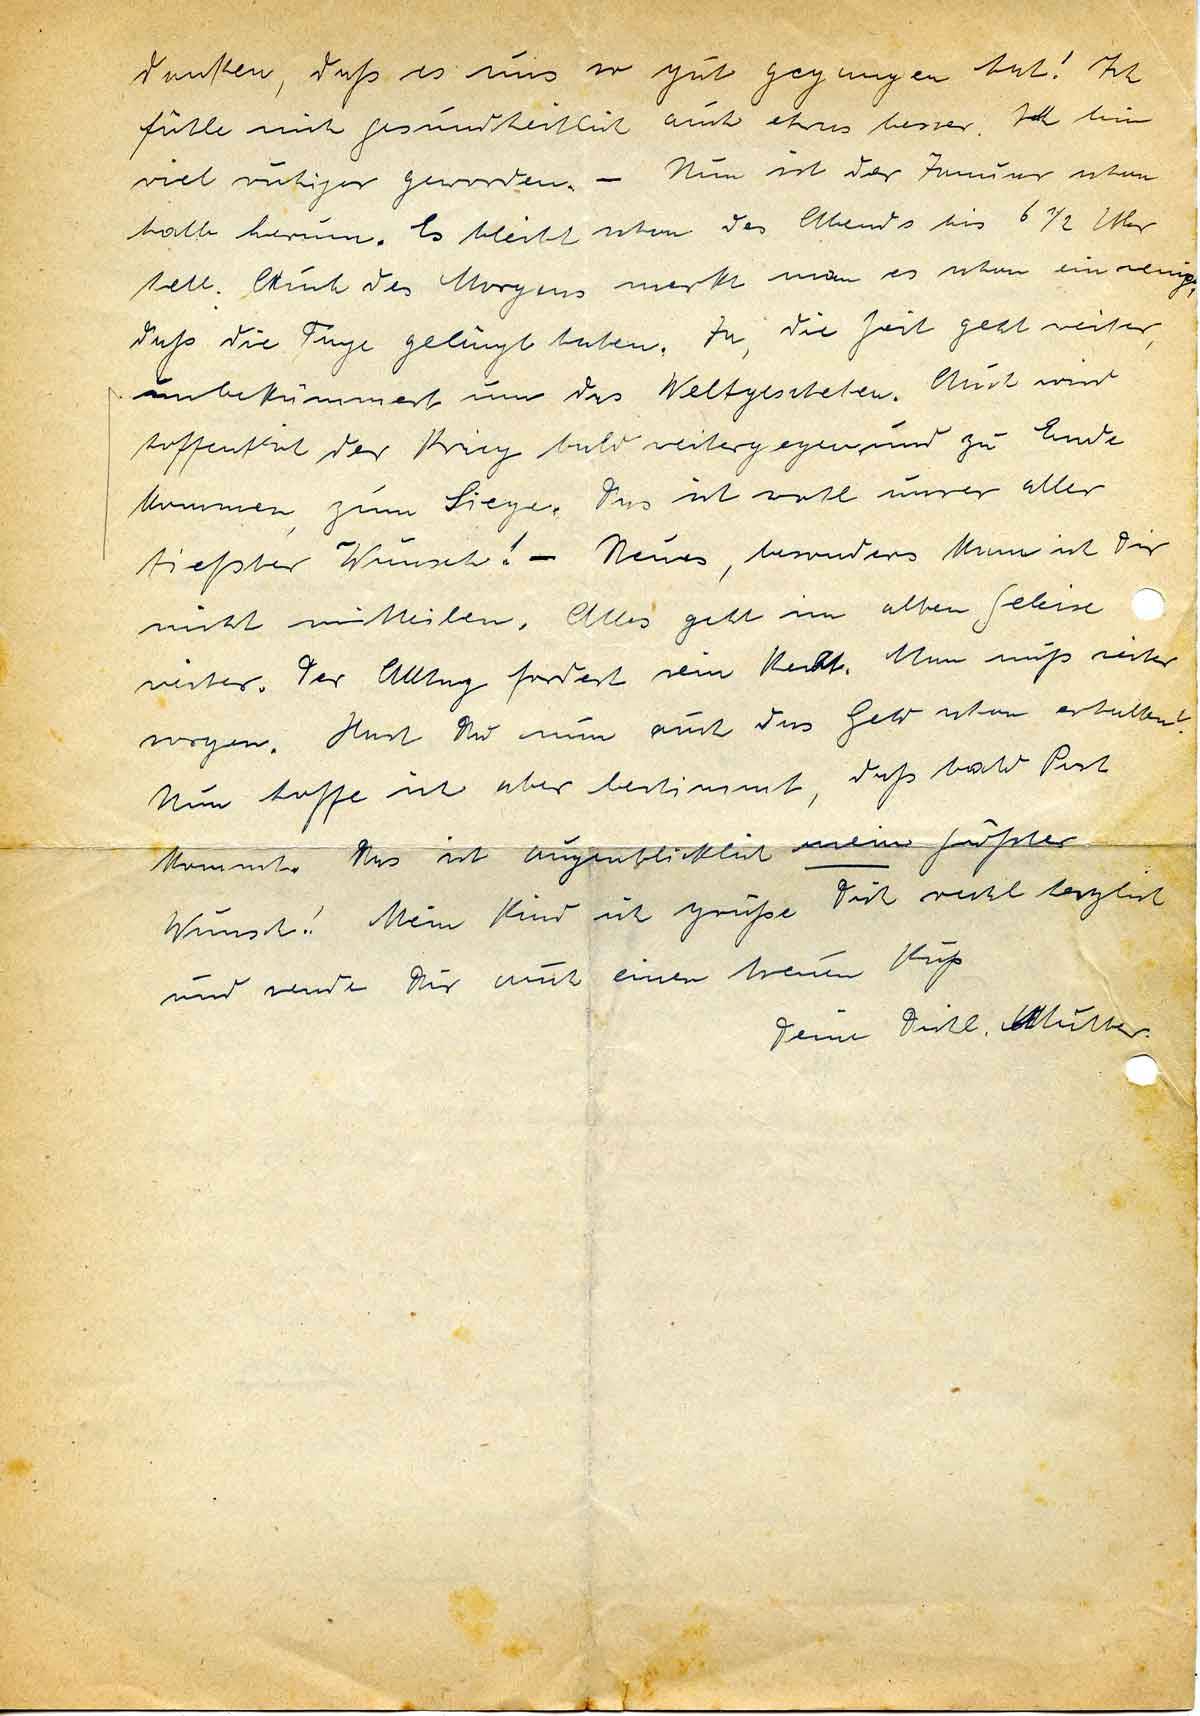 danken, daß es uns so gut gegangen hat! Ich
fühle mich gesundheitlich auch etwas besser. Ich bin
viel ruhiger geworden. – Nun ist der Januar schon
halb herum. Es bleibt schon des Abends bis 6 1/2 Uhr
hell. Auch des Morgens merkt man es schon ein wenig,
daß die Tage gelängt haben. Ja, die Zeit geht weiter,
unbekümmert um das Weltgeschehen. Auch wird
hoffentlich der Krieg bald weitergegen und zu Ende
kommen, zum Siege. Das ist wohl unser aller
tiefster Wunsch! – Neues, besonders kann ich Dir
nicht mitteilen. Alles geht im alten Geleise
weiter. Der Alltag fordert sein Recht. Man muß weiter
sorgen. Hast Du nun auch das Geld schon erhalten?
Nun hoffe ich aber bestimmt, daß bald Post
kommt. Das ist augenblicklich mein größter
Wunsch! Mein Kind ich grüße Dich recht herzlich
und sende Dir auch einen treuen Kuß
Deine Dichl. Mutter.